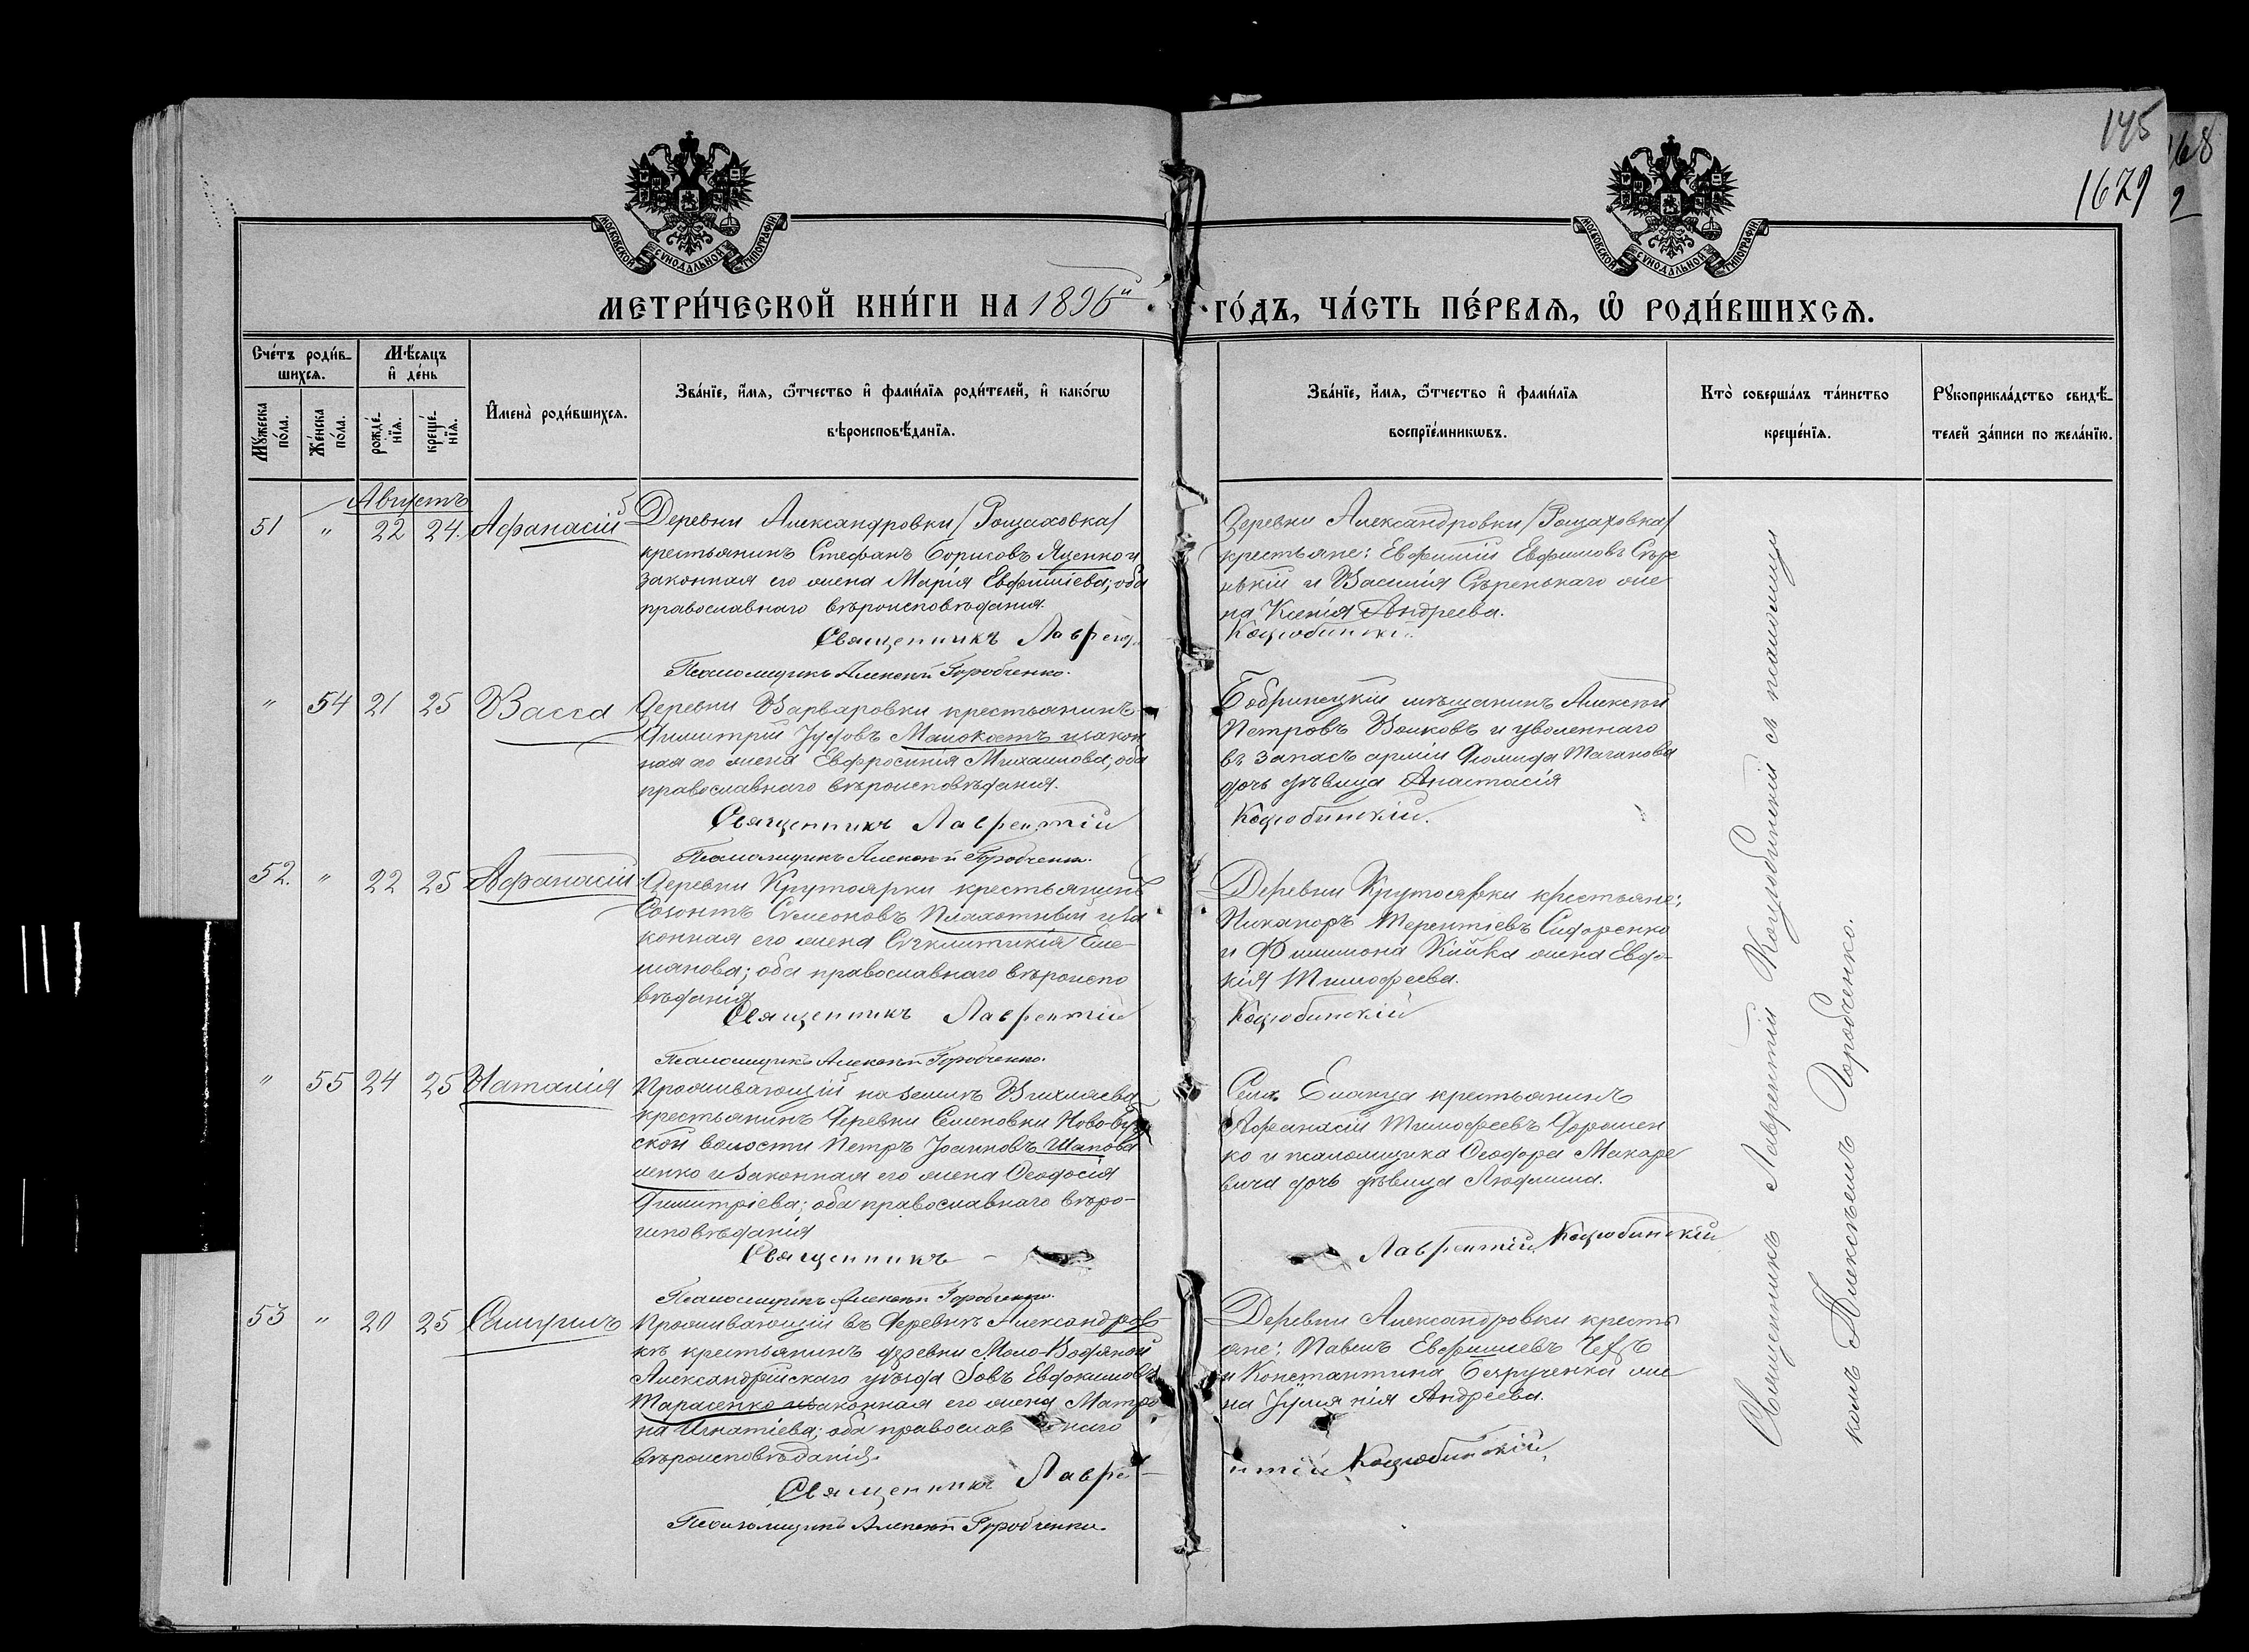 145
1629
168
2
МОСКОВСКОЙ СѴНОДАЛЬНОЙ ТИПОГРАФІИ
МОСКОВСКОЙ СѴНОДАЛЬНОЙ ТИПОГРАФІИ
МЕТРИ́ЧЕСКОЙ КНИ́ГИ НА 1896й ГО́ДЪ, ЧА́СТЬ ПЕ́РВАѦ, Ѡ҆ РОДИ́ВШИХСѦ.
Сче́тъ роди́в-
шихсѧ.
Мѣ́сѧцъ
и҆ де́нь
Мꙋ́жеска
по́ла.
Же́нска
по́ла.
рожде́-
нїѧ.
креще́-
нїѧ.
И҆мена̀ роди́вшихсѧ.
Зва́нїе, и҆́мѧ, ѻ҆́тчество и҆ фами́лїѧ роди́телей, и҆ како́гѡ
вѣроисповѣ́данїѧ.
Зва́нїе, и҆́мѧ, ѻ҆́тчество и҆ фами́лїѧ
воспрїе́мникѡвъ.
Кто̀ соверша́лъ та́инство
креще́нїѧ.
Рꙋкоприкла́дство свидѣ́-
телей за́писи по жела́нїю.
Августъ
51 " 22 24. Афанасій
Деревни Александровки /Рощаховка/
крестьянинъ Стефанъ Борисовъ Яценко и
законная его жена Марія Евфиміева; оба
православнаго вѣроисповѣданія.
Священникъ Лаврен
Псаломщикъ Алексѣй Горобченко.
Деревни Александровки /Рощаховка/
крестьяне: Евфимій Евфимовъ Сѣре
нькій и Василія Сѣренькаго же
на Ксенія Андреева.
Коцюбинскі
" 54 21 25 Васса
Деревни Варваровки крестьянинъ
Димитрій Іудовъ Малокостъ и закон
ная его жена Евфросинія Михаилова; оба
православнаго вѣроисповѣданія.
Священникъ Лаврентій
Псаломщикъ Алексѣй Горобченко.
Бобринецкій мѣщанинъ Алексѣй
Петровъ Волковъ и уволеннаго
въ запасъ арміи Діомида Таганова
дочь дѣвица Анастасія
Коцюбинскій.
52. " 22 25 Афанасій
Деревни Крутоярки крестьянинъ
Созонтъ Симеоновъ Плахотный и за
конная его жена Сѵнклитикія Еме-
льянова; оба православнаго вѣроиспо
вѣданія
Священникъ Лаврентій
Псаломщикъ Алексѣй Горобченко.
Деревни Крутоярки крестьяне:
Никаноръ Терентіевъ Сидоренко
и Филимона Кійка жена Евдо-
кія Тимофеева.
Коцюбинскій
" 55 24 25 Наталія
Проживающій на землѣ Вихляева
крестьянинъ деревни Семеновки Ново-Буг
ской волости Петръ Іоанновъ Шапова
ленко и законная его жена Ѳеодосія
Димитріева; оба православнаго вѣро-
исповѣданія
Священникъ -
Псаломщикъ Алексѣй Горобченко.
Села Еланца крестьянинъ
Афанасій Тимофеевъ Дорошен
ко и псаломщика Ѳеодора Макаре
вича дочь дѣвица Людмила.
Лаврентій Коцюбинскій
53 " 20 25 Самуилъ
Проживающій въ деревнѣ Александров-
кѣ крестьянинъ деревни Мало-Водяной
Александрійскаго уѣзда Іовъ Евдокимовъ
Тарасенко и законная его жена Матро
на Игнатіева; оба православ наго
вѣроисповѣданія.
Священникъ Лавре-
Псаломщикъ Алексѣй Горобченко.
Деревни Александровки кресть
яне: Павелъ Евфиміевъ
и Константина Безрученка же
на Іуліанія Андреева.
нтій Коцюбинскій.
Священникъ Лаврентій Коцюбинскій съ псаломщи
комъ Алексѣемъ Горобченко.